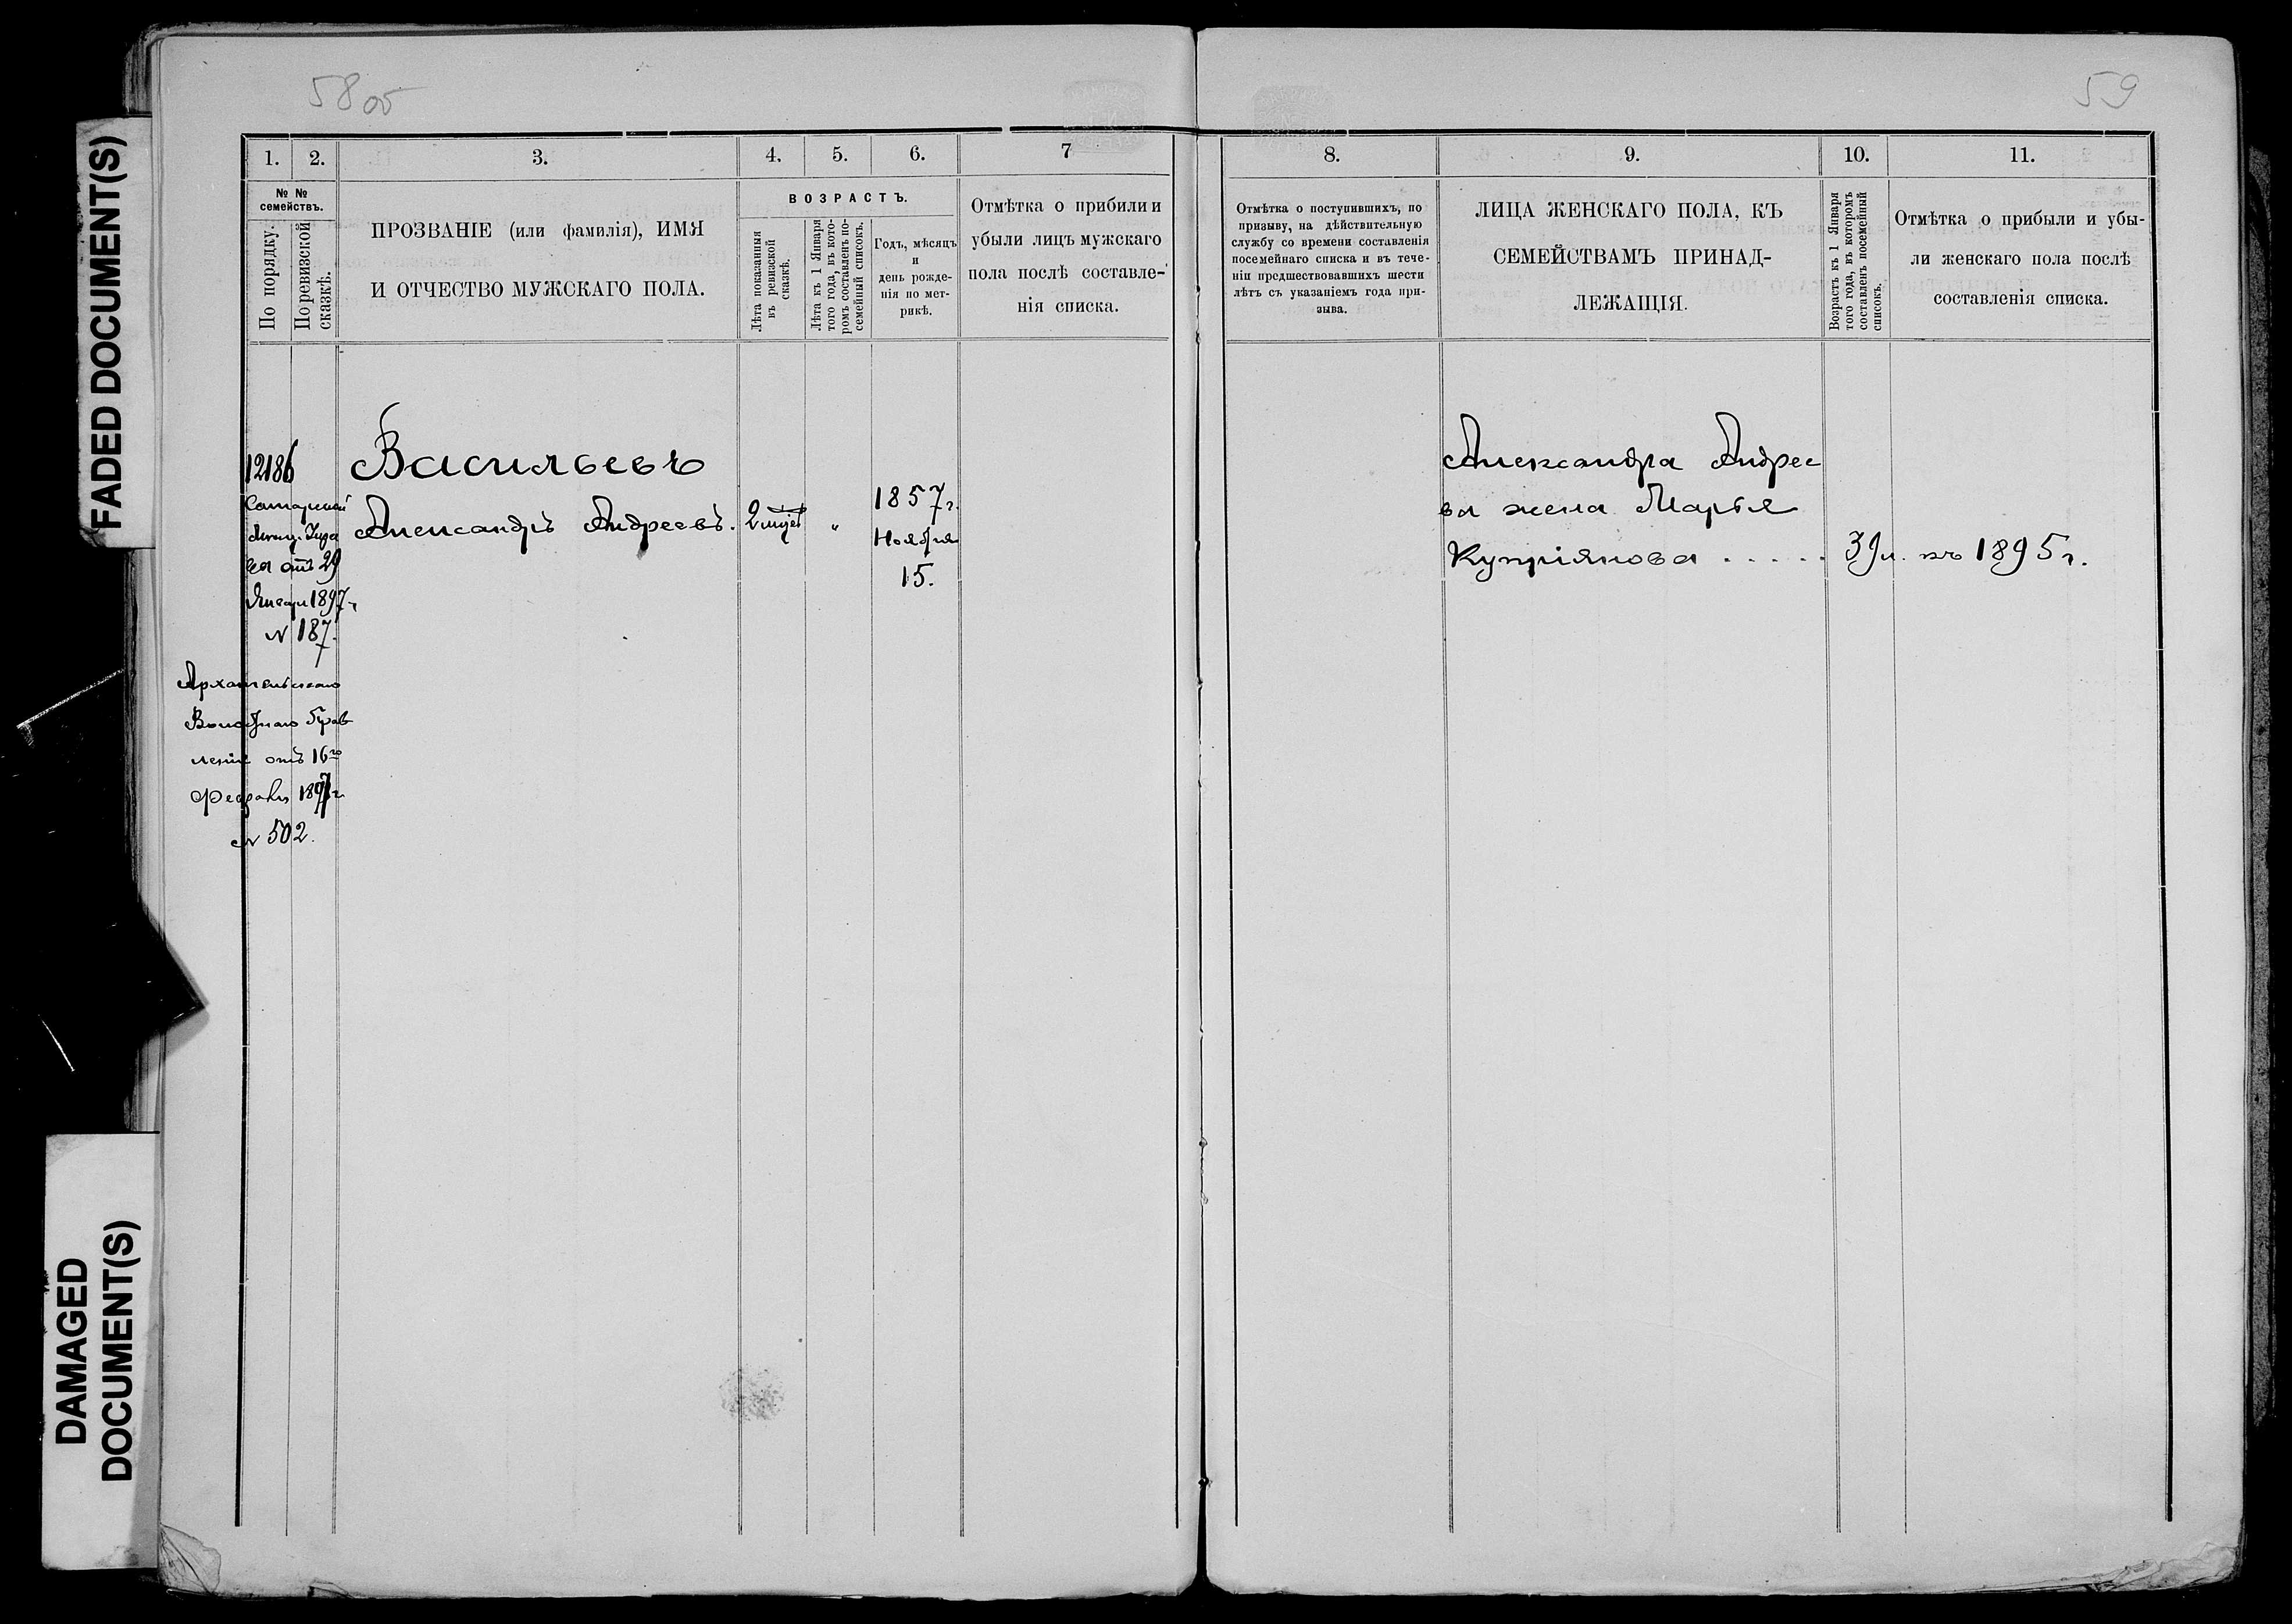 58 об
59
FADED DOCUMENT(S)
DAMAGED
DOCUMENT(S)
1.
2.
3.
4.
5.
6.
7
№ №
семействъ.
По порядку.
По ревизской
сказкѣ.
ПРОЗВАНІЕ (или фамилія), ИМЯ
И ОТЧЕСТВО МУЖСКАГО ПОЛА.
ВОЗРАСТЪ.
Лѣта показанныя
въ ревизской
сказкѣ.
Лѣта къ 1 Января
того года, въ кото-
ромъ составленъ по-
семейный списокъ.
Годъ, мѣсяцъ
и
день рожде-
нія по мет-
рикѣ.
Отмѣтка о прибили и
убыли лицъ мужскаго
пола послѣ составле-
нія списка.
12186
отъ 29
Января 1897 г.
№ 187.
Архангельскаго
Волостного Прав
ленія отъ 16го
Февраля 1897 г.
№ 502.
Васильевъ
Александръ Андреевъ.
2 "
1857 г.
Ноября
15.
8.
9.
10.
11.
Отмѣтка о поступившихъ, по
призыву, на дѣйствительную
службу со времени составленія
посемейнаго списка и въ тече-
ніи предшествовавшихъ шести
лѣтъ съ указаніемъ года при-
зыва.
ЛИЦА ЖЕНСКАГО ПОЛА, КЪ
СЕМЕЙСТВАМЪ ПРИНАД-
ЛЕЖАЩІЯ.
Возрастъ къ 1 Января
того года, въ которомъ
составленъ посемейный
списокъ.
Отмѣтка о прибыли и убы-
ли женскаго пола послѣ
составленія списка.
Александра Андрее
ва жена Марья
Купріянова . . . . . 39 л. къ 1895 г.